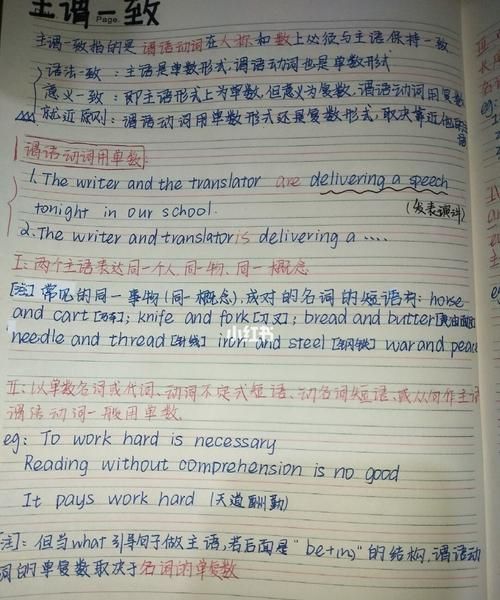 主谓一致
Page.
主谓一致指的是 谓语动词在人称和数上必须与主语保持一致
语法一致：主语是单数形式,谓语动词也是单数形式
意义一致：即主语形式上为单数,但意义为复数,谓语动词用复数
就近原则：谓语动词用单数形式还是复数形式,取决靠近
谓语动词用单数
1.The writer and the translator are delivering a speech
tonight in our school. (发表演讲)
2.The writer and translator is delivering a ....
I：两个主语表达同一个人、同一物、同一概念
[注]常见的同一事物(同一概念),成对的名词的短语有：horse
and cart[马车]；knife and fork[刀叉]；bread and butter[黄油面包]
needle and thread[针线] iron and steel[钢铁] war and peace
小红书
II：以单数名词或代词、动词不定式短语、动名词短语、或从句作主语
谓语动词一般用单数.
eg：To work hard is necessary
Reading without comprehension is no good
It pays work hard (天道酬勤)
[注]：但当what引导句子做主语,若后面是"be+ing"的结构,谓语动
词的单复数取决于名词的单复数